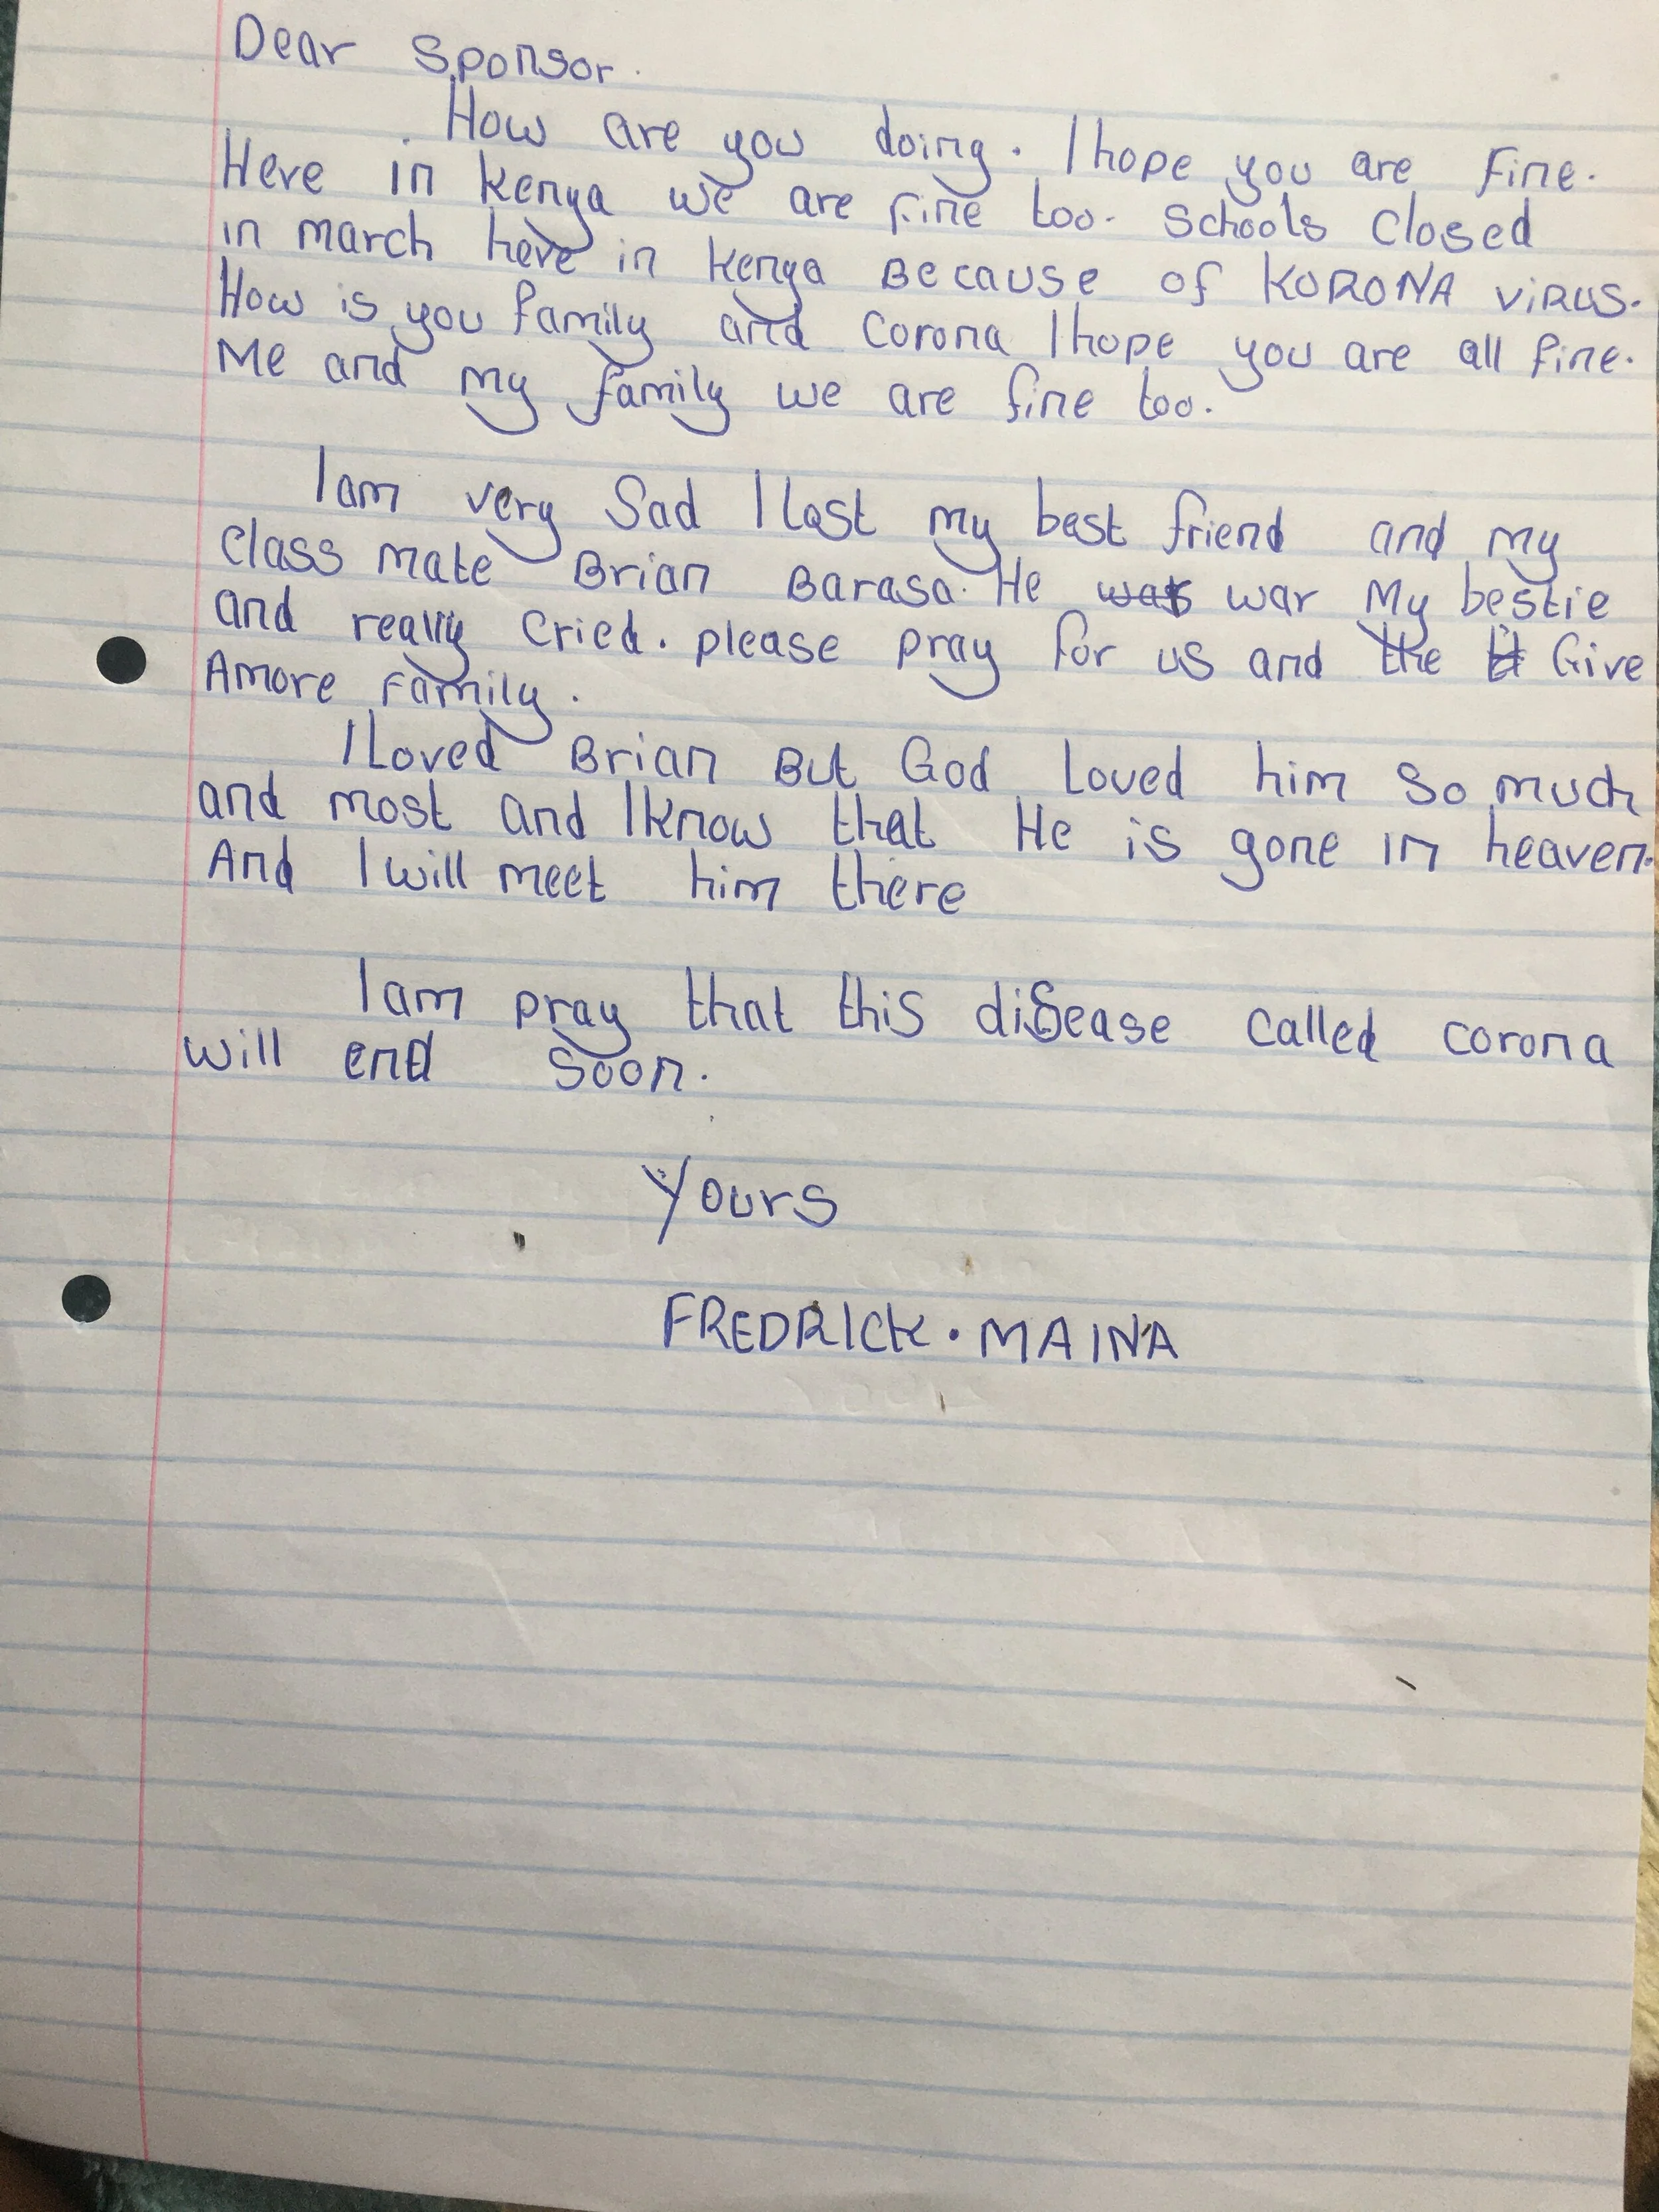 Dear Sponsor.
How are you doing. I hope you are fine.
Here in Kenya we are fine too. Schools closed
in march here in Kenya Because of KORONA VIRUS.
How is you family and Corona I hope you are all fine.
Me and my family we are fine too.
I am very Sad I lost my best friend and my
class mate Brian Barasa. He war My bestie
and really cried. please pray for us and the Give
Amore Family.
I Loved Brian But God Loved him so much
and most and I know that He is gone in heaven.
And I will meet him there
I am pray that this disease called corona
will end soon.
Yours
FREDRICK. MAINA